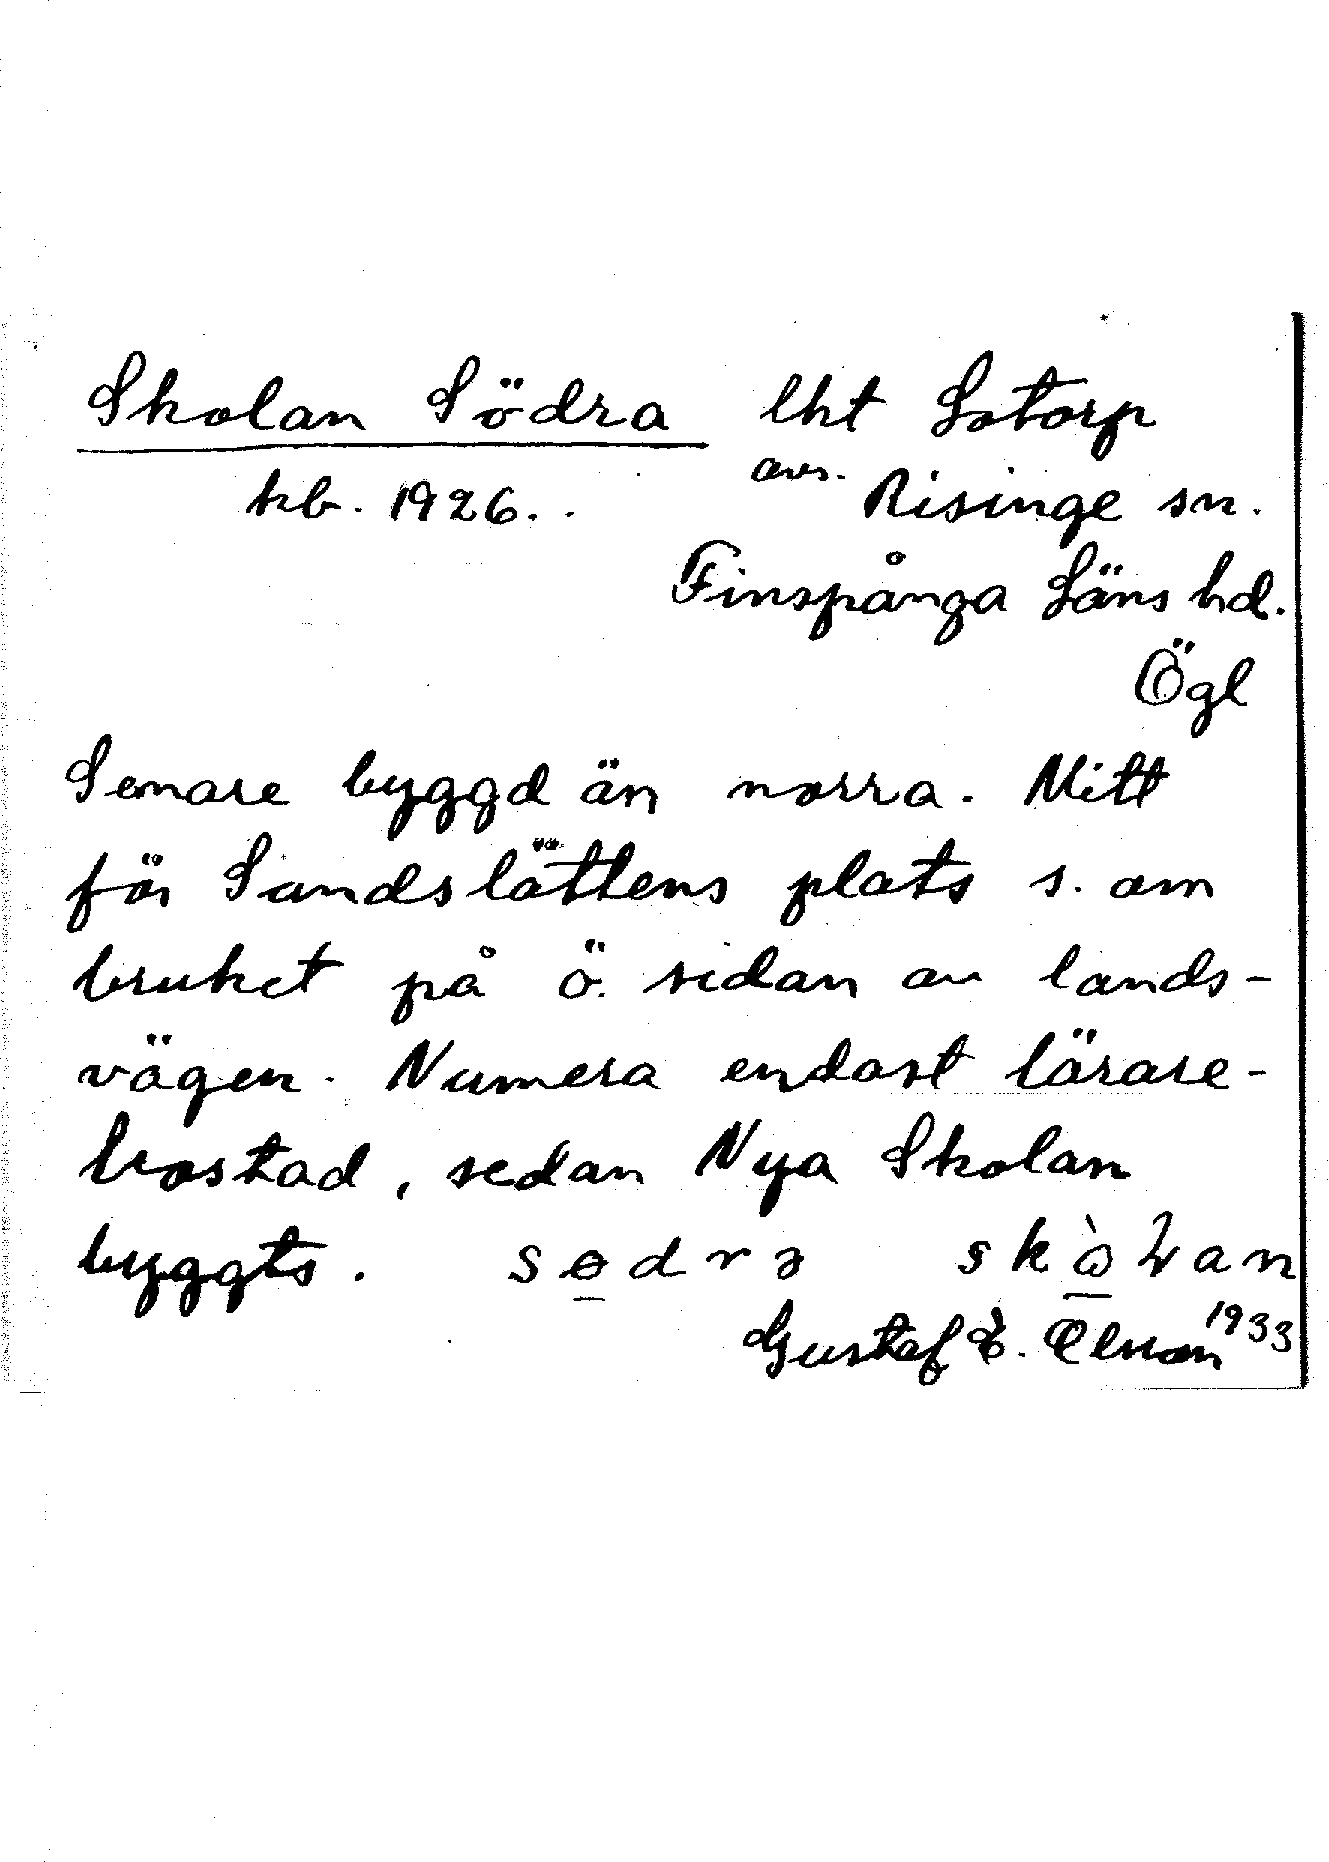 Skolan Södra lht Lotorp
kb. 1926. avs. Risinge sn.
Finspånga Läns hd.
Ögl
Senare byggd än norra. Mitt
för Sandslättens plats s. om
bruket på ö. sidan av lands-
vägen. Numera endast lärare-
bostad, sedan Nya Skolan
byggts. södra
Gustaf E. 1933